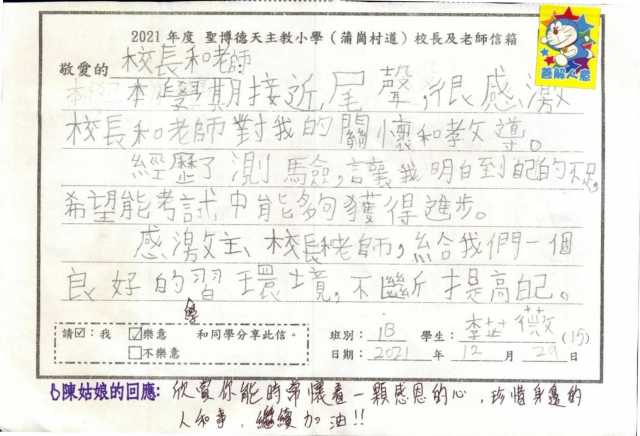 2021 年度 聖博德天主教小學（蒲崗村道）校長及老師信箱
善解人意
敬愛的 校長和老師
本學期接近尾聲,很感激
校長和老師對我的關懷和教導。
經歷了測驗,讓我明白到自己的不足,
希望能考試中能夠獲得進步。
感激主、校長和老師,給我們一個
良好的習環境,不斷提高自己。
學
請☑：我 ☑樂意 和同學分享此信。
□不樂意
班別： 1B 學生： 李芷薇 (15)
日期： 2021 年 12 月 29 日
陳姑娘的回應: 欣賞你能時常懷着一顆感恩的心，珍惜身邊的
人和事，繼續加油!!